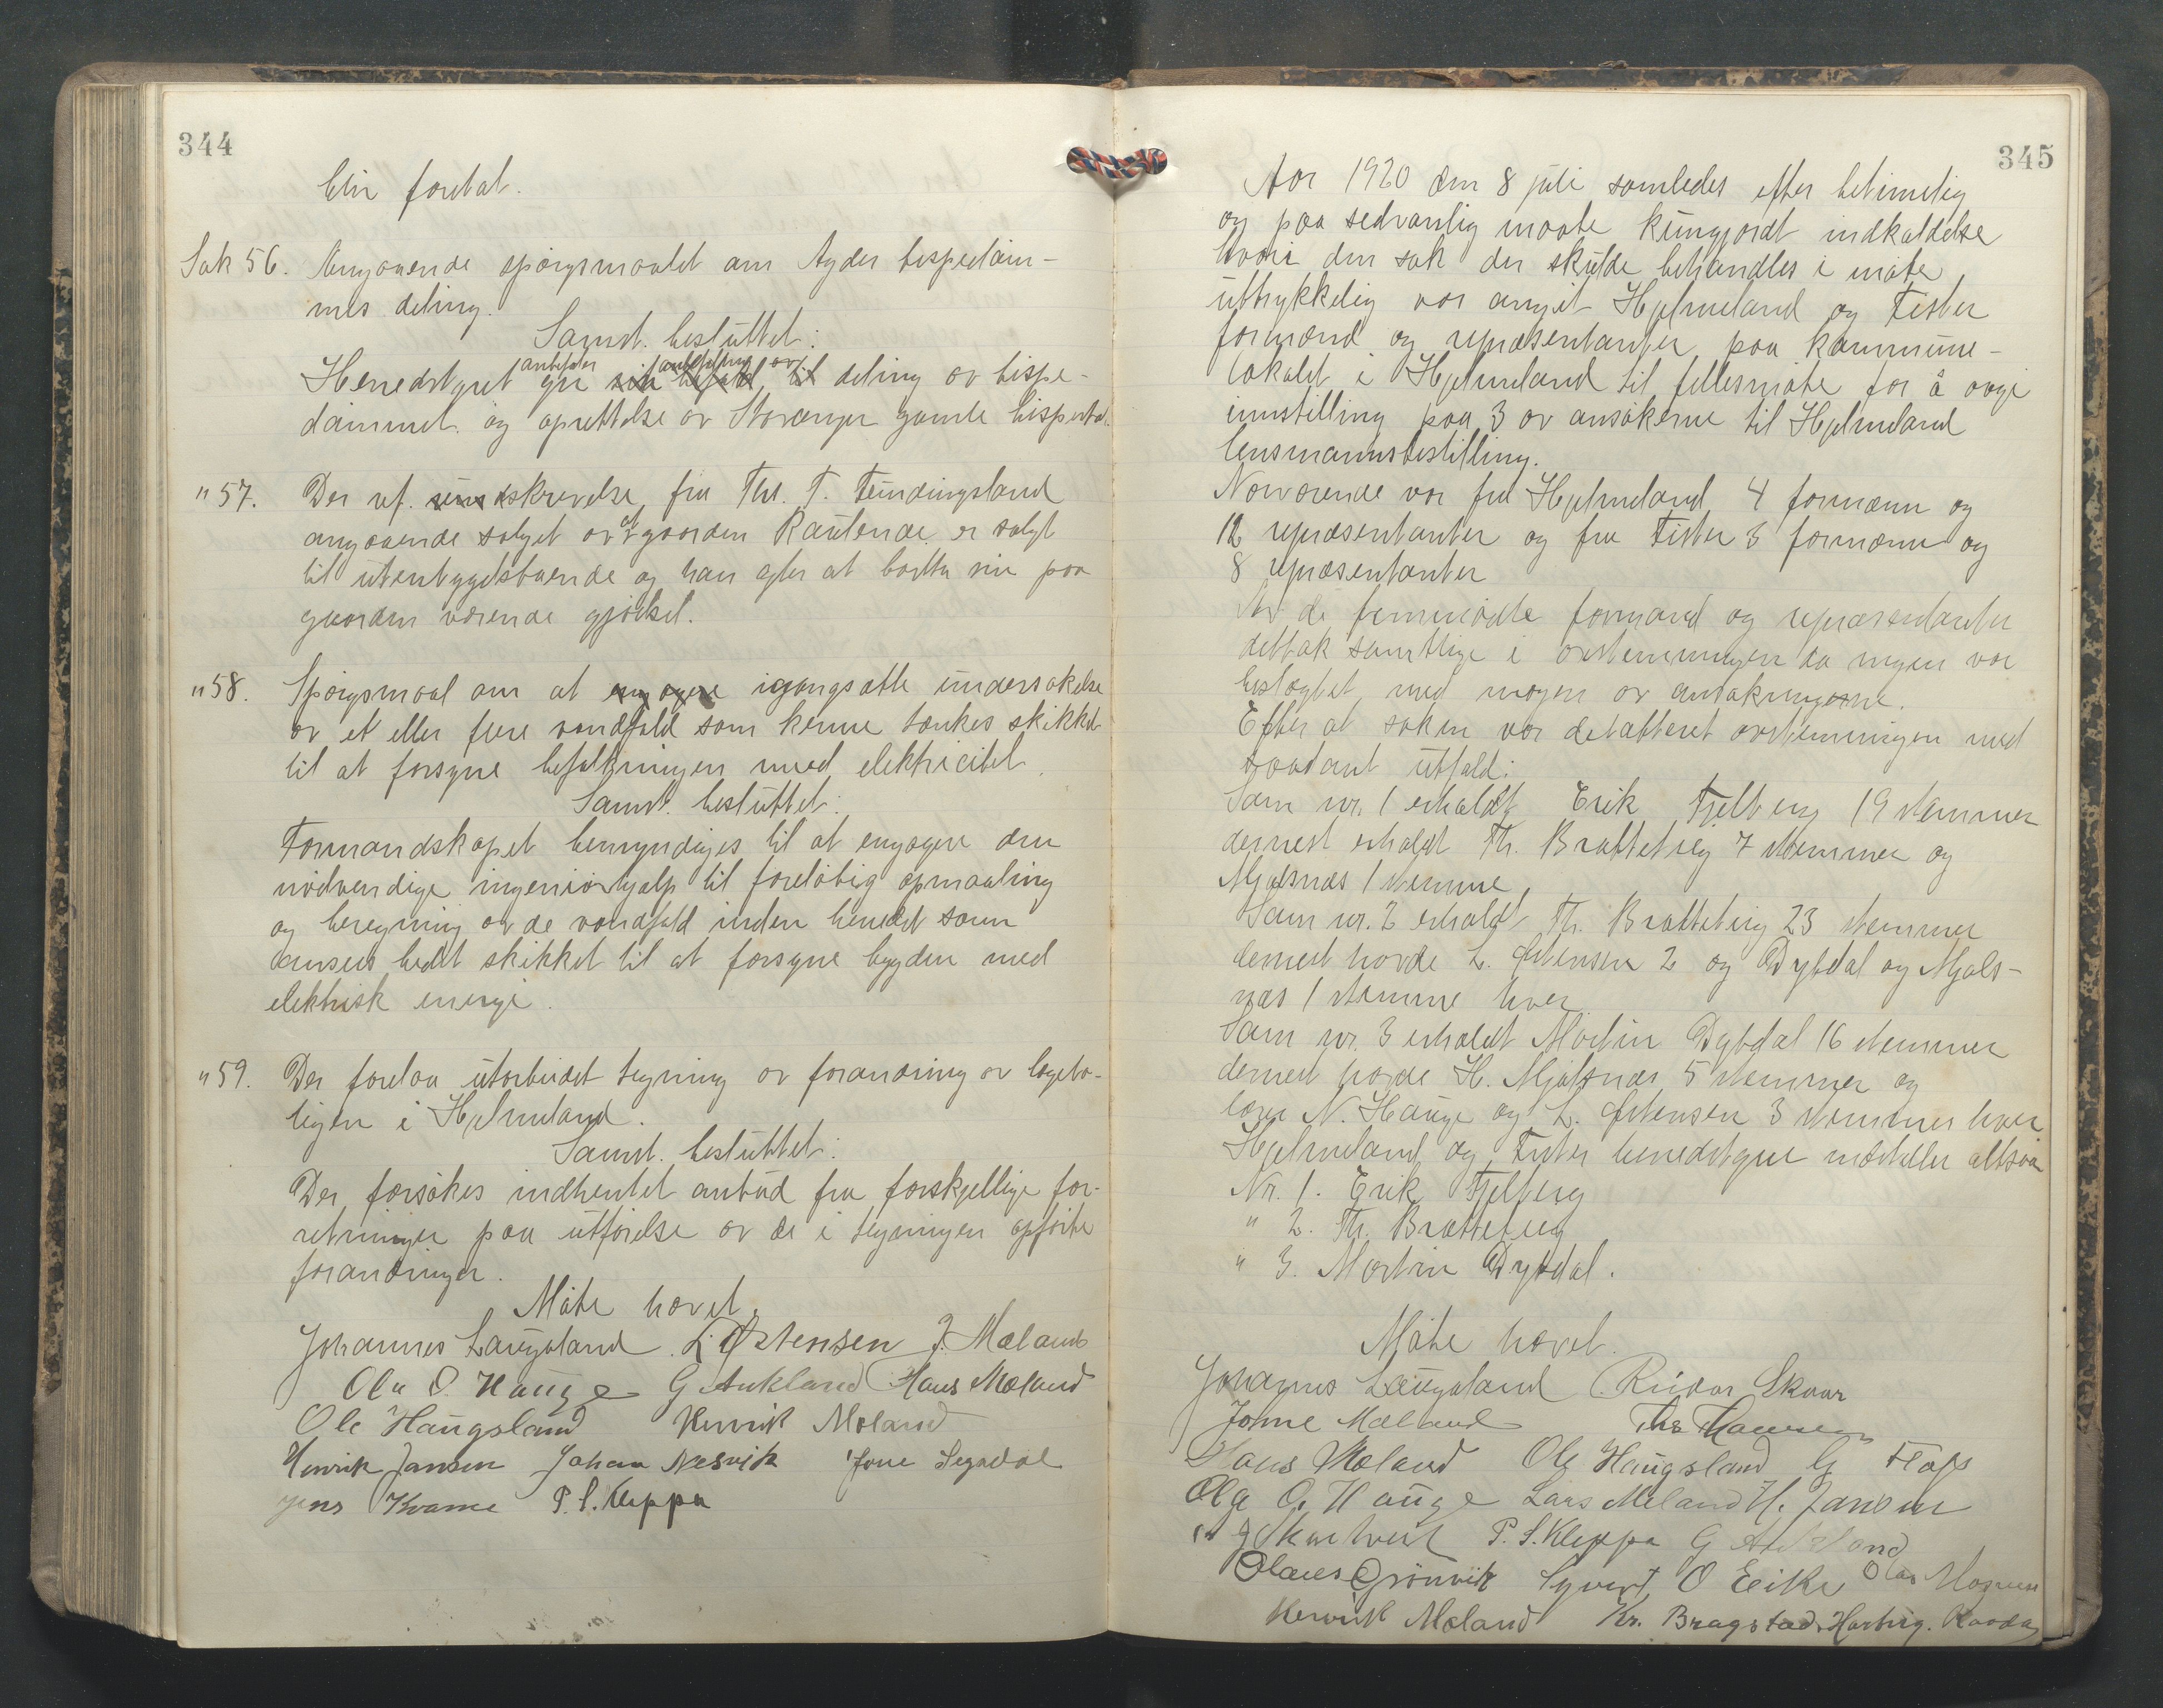 344
blir foretat.
Sak 56. Angaaende spørgsmaalet om Agder bispedøm-
mes deling.
Samst. besluttet:
Herredstyret anbefaler deling av bispe-
dømmet og oprettelse av Stavanger gamle bispestol.
" 57. Der ref. skrivelse fra Thr. T. Tøndingsland
angaaende salget av gaarden Rautende er solgt
til utenbygdsboende og han agter at bortta sin paa
gaarden værende gjødsel.
" 58. Spørgsmaal om at igangsætte undersøkelse
av et eller flere vandfald som kunne tænkes skikket
til at forsyne befolkningen med elektricitet.
Samst. besluttet:
Formandskapet bemyndiges til at engagere den
nødvendige ingeniørhjælp til foreløbig opmaaling
og beregning av de vandfald inden herredet som
ansees bedst skikket til at forsyne bygden med
elektrisk energi.
" 59. Der forelaa utarbeidet tegning av forandring av lægebo-
ligen i Hjelmeland.
Samst. besluttet:
Der forsøkes indhentet anbud fra forskjellige for-
retninger paa utførelse av de i tegningen opførte
forandringer.
Møte hævet.
Johannes Laugaland L. Østensen J. Mæland
Ola O. Hauge G Aukland Hans Mæland
Ole Haugsland Henrik Mæland
Henrik Jansen Johan Nesvik Jone Segadal
Jens Kvame P. S. Kleppa
345
Aar 1920 den 8 juli samledes efter betimelig
og paa sedvanlig maate kungjordt indkaldelse
hvori den sak der skulde behandles i møte
uttrykkelig var angit Hjelmeland og Fister
formænd og repræsentanter paa kommune-
lokalet i Hjelmeland til fellesmøte for å avgi
innstilling paa 3 av ansøkerne til Hjelmeland
lensmannsbestilling.
Nærværende var fra Hjelmeland 4 formænn og
12 repræsentanter og fra Fister 3 formænn og
8 repræsentanter
Av de fremmødte formænd og repræsentanter
deltok samtlige i avstemningen da ingen var
beslægtet med nogen av ansøkningerne.
Efter at saken var debatteret avstemningen med
saadant utfald:
Som nr. 1 erholdt Erik Fjelberg 19 stemmer
dernest erholdt Th. Brattetveig 7 stemmer og
Mjølsnæs 1 stemme
Som nr. 2 erholdt Th. Brattetveig 23 stemmer
dernest havde L. Østensen 2 og Dybdal og Mjøls-
næs 1 stemme hver
Som nr. 3 erholdt Martin Dybdal 16 stemmer
dernest havde H. Mjølsnæs 5 stemmer og
lærer N. Hauge og L. Østensen 3 stemmer hver
Hjelmeland og Fister herredstyre indstiller altsaa
Nr. 1. Erik Fjelberg
" 2. Th. Brattetveig
" 3. Martin Dybdal.
Møte hævet.
Johannes Laugaland Reidar Skaar
Jonne Mæland Ths Hansen
Hans Mæland Ole Haugsland
Ola O. Hauge Lars Meland H. Jansen
P. S. Kleppa G Aukland
Olaus Grønvik Syvert O Eike
Henrik Mæland Kr. Bragstad